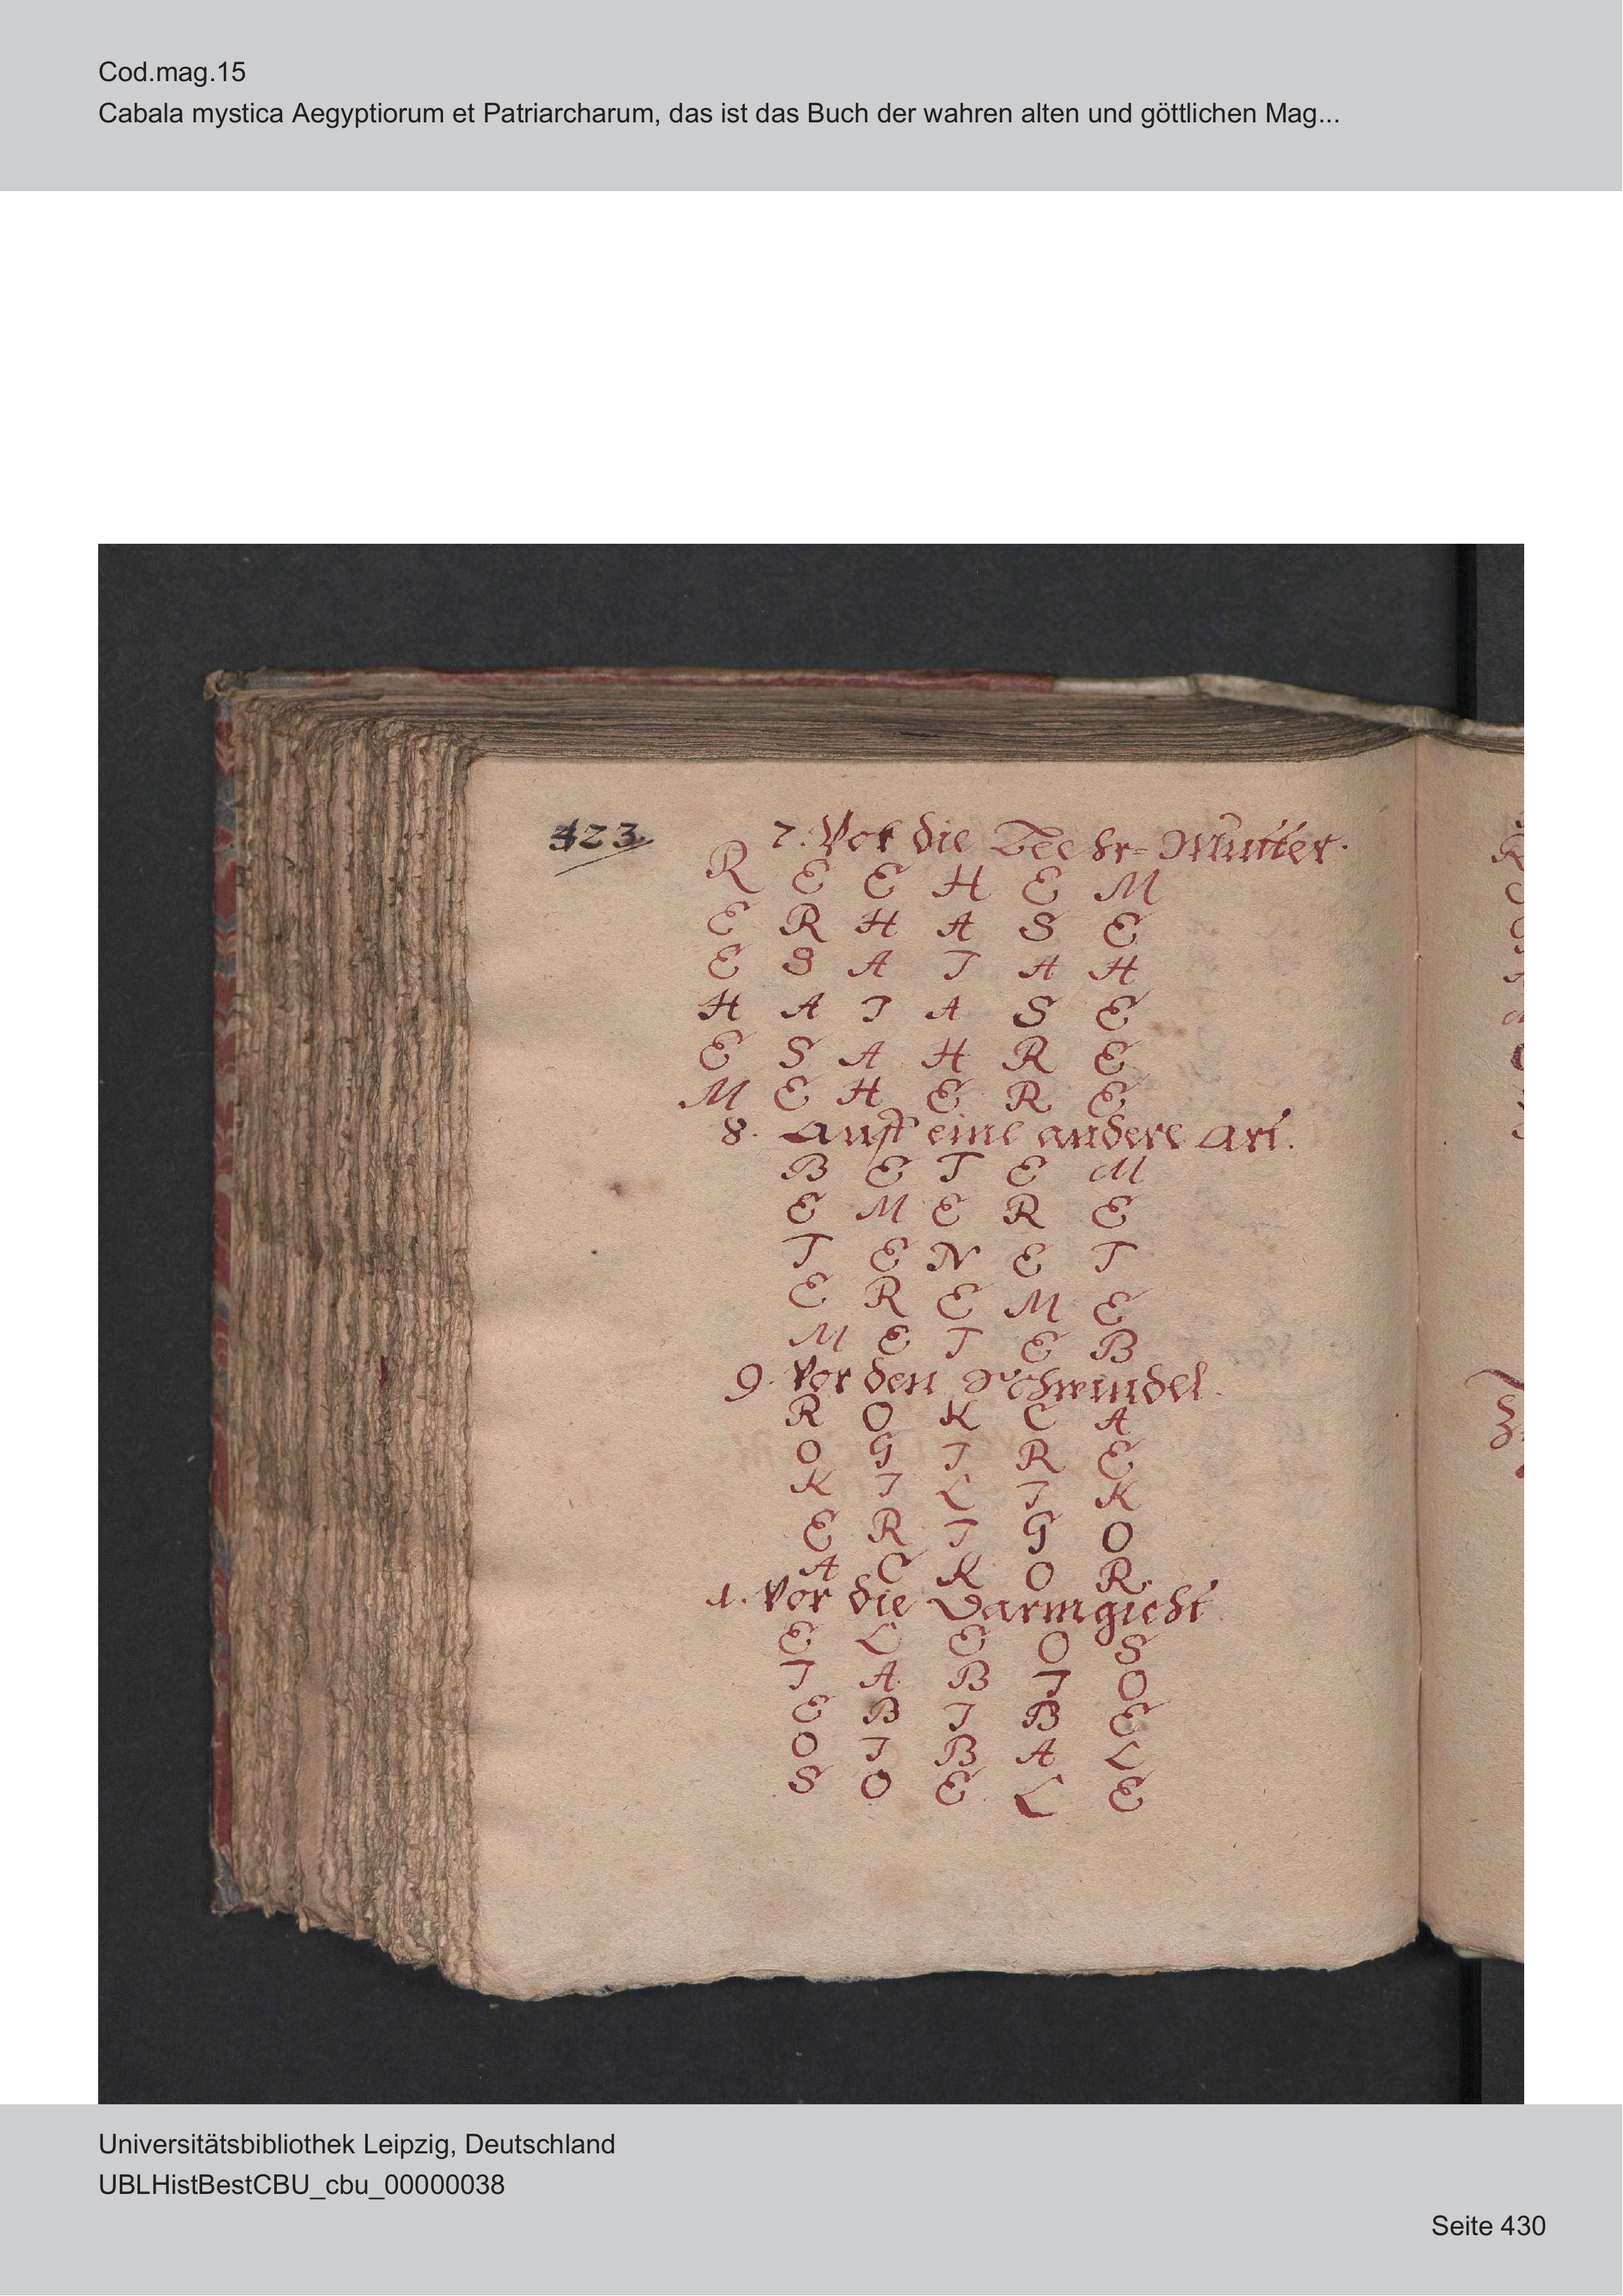 Cod.mag.15
Cabala mystica Aegyptiorum et Patriarcharum, das ist das Buch der wahren alten und göttlichen Mag...
423.
7. Vor die Beehr-Mutter.
R E E H E M
E R H A S E
E S A T A H
H A T A S E
E S A H R E
M E H E R E
8. Auff eine andere Art.
B E T E M
E M E R E
T E N E T
E R E M E
M E T E B
9. Vor den Schwindel.
R O K C A
O G I R E
K I L I K
E R I G O
A C K O R.
1. Vor die Darmgicht
E L E O S
I A B I O
E B I B E
O I B A L
S O E L E
Universitätsbibliothek Leipzig, Deutschland
UBLHistBestCBU_cbu_00000038
Seite 430